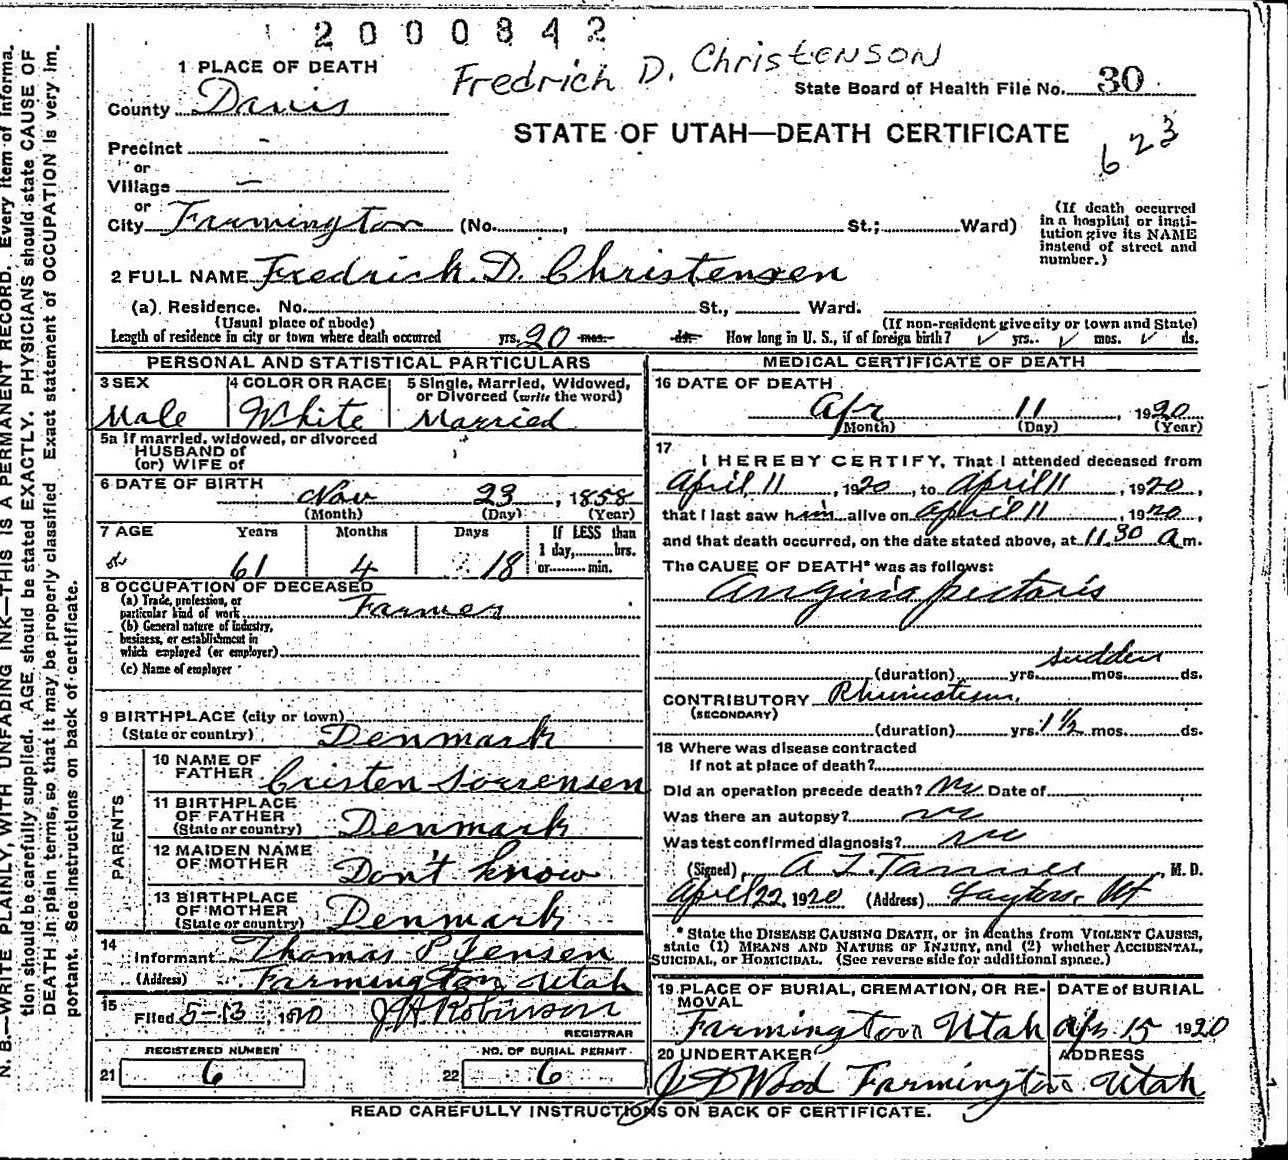 2000842
Fredrich D. Christenson
1 PLACE OF DEATH
State Board of Health File No. 30
County Davis
STATE OF UTAH—DEATH CERTIFICATE
623
Precinct -
or
Village —
or
City Farmington (No. , St.; Ward)
(If death occurred
in a hospital or insti-
tution give its NAME
instead of street and
number.)
2 FULL NAME Fredrick. D. Christensen
(a). Residence. No. St., Ward.
(Usual place of abode)
(If non-resident give city or town and State)
Length of residence in city or town where death occurred yrs. 20 mos. ds. How long in U. S., if of foreign birth? yrs. mos. ds.
PERSONAL AND STATISTICAL PARTICULARS
3 SEX
Male
4 COLOR OR RACE
White
5 Single, Married, Widowed,
or Divorced (write the word)
Married
5a If married, widowed, or divorced
HUSBAND of
(or) WIFE of
6 DATE OF BIRTH
Nov 23, 1858
(Month) (Day) (Year)
7 AGE Years Months Days
61 4 18
If LESS than
1 day, hrs.
or min.
8 OCCUPATION OF DECEASED
(a) Trade, profession, or
particular kind of work Farmer
(b) General nature of industry,
business, or establishment in
which employed (or employer)
(c) Name of employer
9 BIRTHPLACE (city or town)
(State or country) Denmark
PARENTS
10 NAME OF
FATHER Cristen Sorrensen
11 BIRTHPLACE
OF FATHER
(State or country) Denmark
12 MAIDEN NAME
OF MOTHER Don't know
13 BIRTHPLACE
OF MOTHER
(State or country) Denmark
14
Informant Thomas P Jensen
(Address) Farmington Utah
15
Filed 5-13, 1920 J H Robinson
REGISTRAR
REGISTERED NUMBER
21 6
NO. OF BURIAL PERMIT
22 6
MEDICAL CERTIFICATE OF DEATH
16 DATE OF DEATH
Apr 11, 1920
(Month) (Day) (Year)
17
I HEREBY CERTIFY, That I attended deceased from
April 11, 1920, to April 11, 1920,
that I last saw him alive on April 11, 1920,
and that death occurred, on the date stated above, at 11.30 a m.
The CAUSE OF DEATH* was as follows:
Angina pectoris
sudden
(duration) yrs. mos. ds.
CONTRIBUTORY Rhumatism.
(SECONDARY)
(duration) yrs. 1 1/2 mos. ds.
18 Where was disease contracted
If not at place of death?
Did an operation precede death? No. Date of
Was there an autopsy? no
Was test confirmed diagnosis? no
(Signed) A. Z. Tanner, M. D.
April 22, 1920 (Address) Layton, Ut
* State the DISEASE CAUSING DEATH, or in deaths from VIOLENT CAUSES,
state (1) MEANS AND NATURE OF INJURY, and (2) whether ACCIDENTAL,
SUICIDAL, or HOMICIDAL. (See reverse side for additional space.)
19 PLACE OF BURIAL, CREMATION, OR RE-
MOVAL
Farmington Utah
DATE OF BURIAL
Apr 15 1920
20 UNDERTAKER
J D Wood
ADDRESS
Farmington Utah
READ CAREFULLY INSTRUCTIONS ON BACK OF CERTIFICATE.
N. B.—WRITE PLAINLY, WITH UNFADING INK—THIS IS A PERMANENT RECORD. Every item of informa-
tion should be carefully supplied. AGE should be stated EXACTLY. PHYSICIANS should state CAUSE OF
DEATH in plain terms, so that it may be properly classified. Exact statement of OCCUPATION is very im-
portant. See instructions on back of certificate.